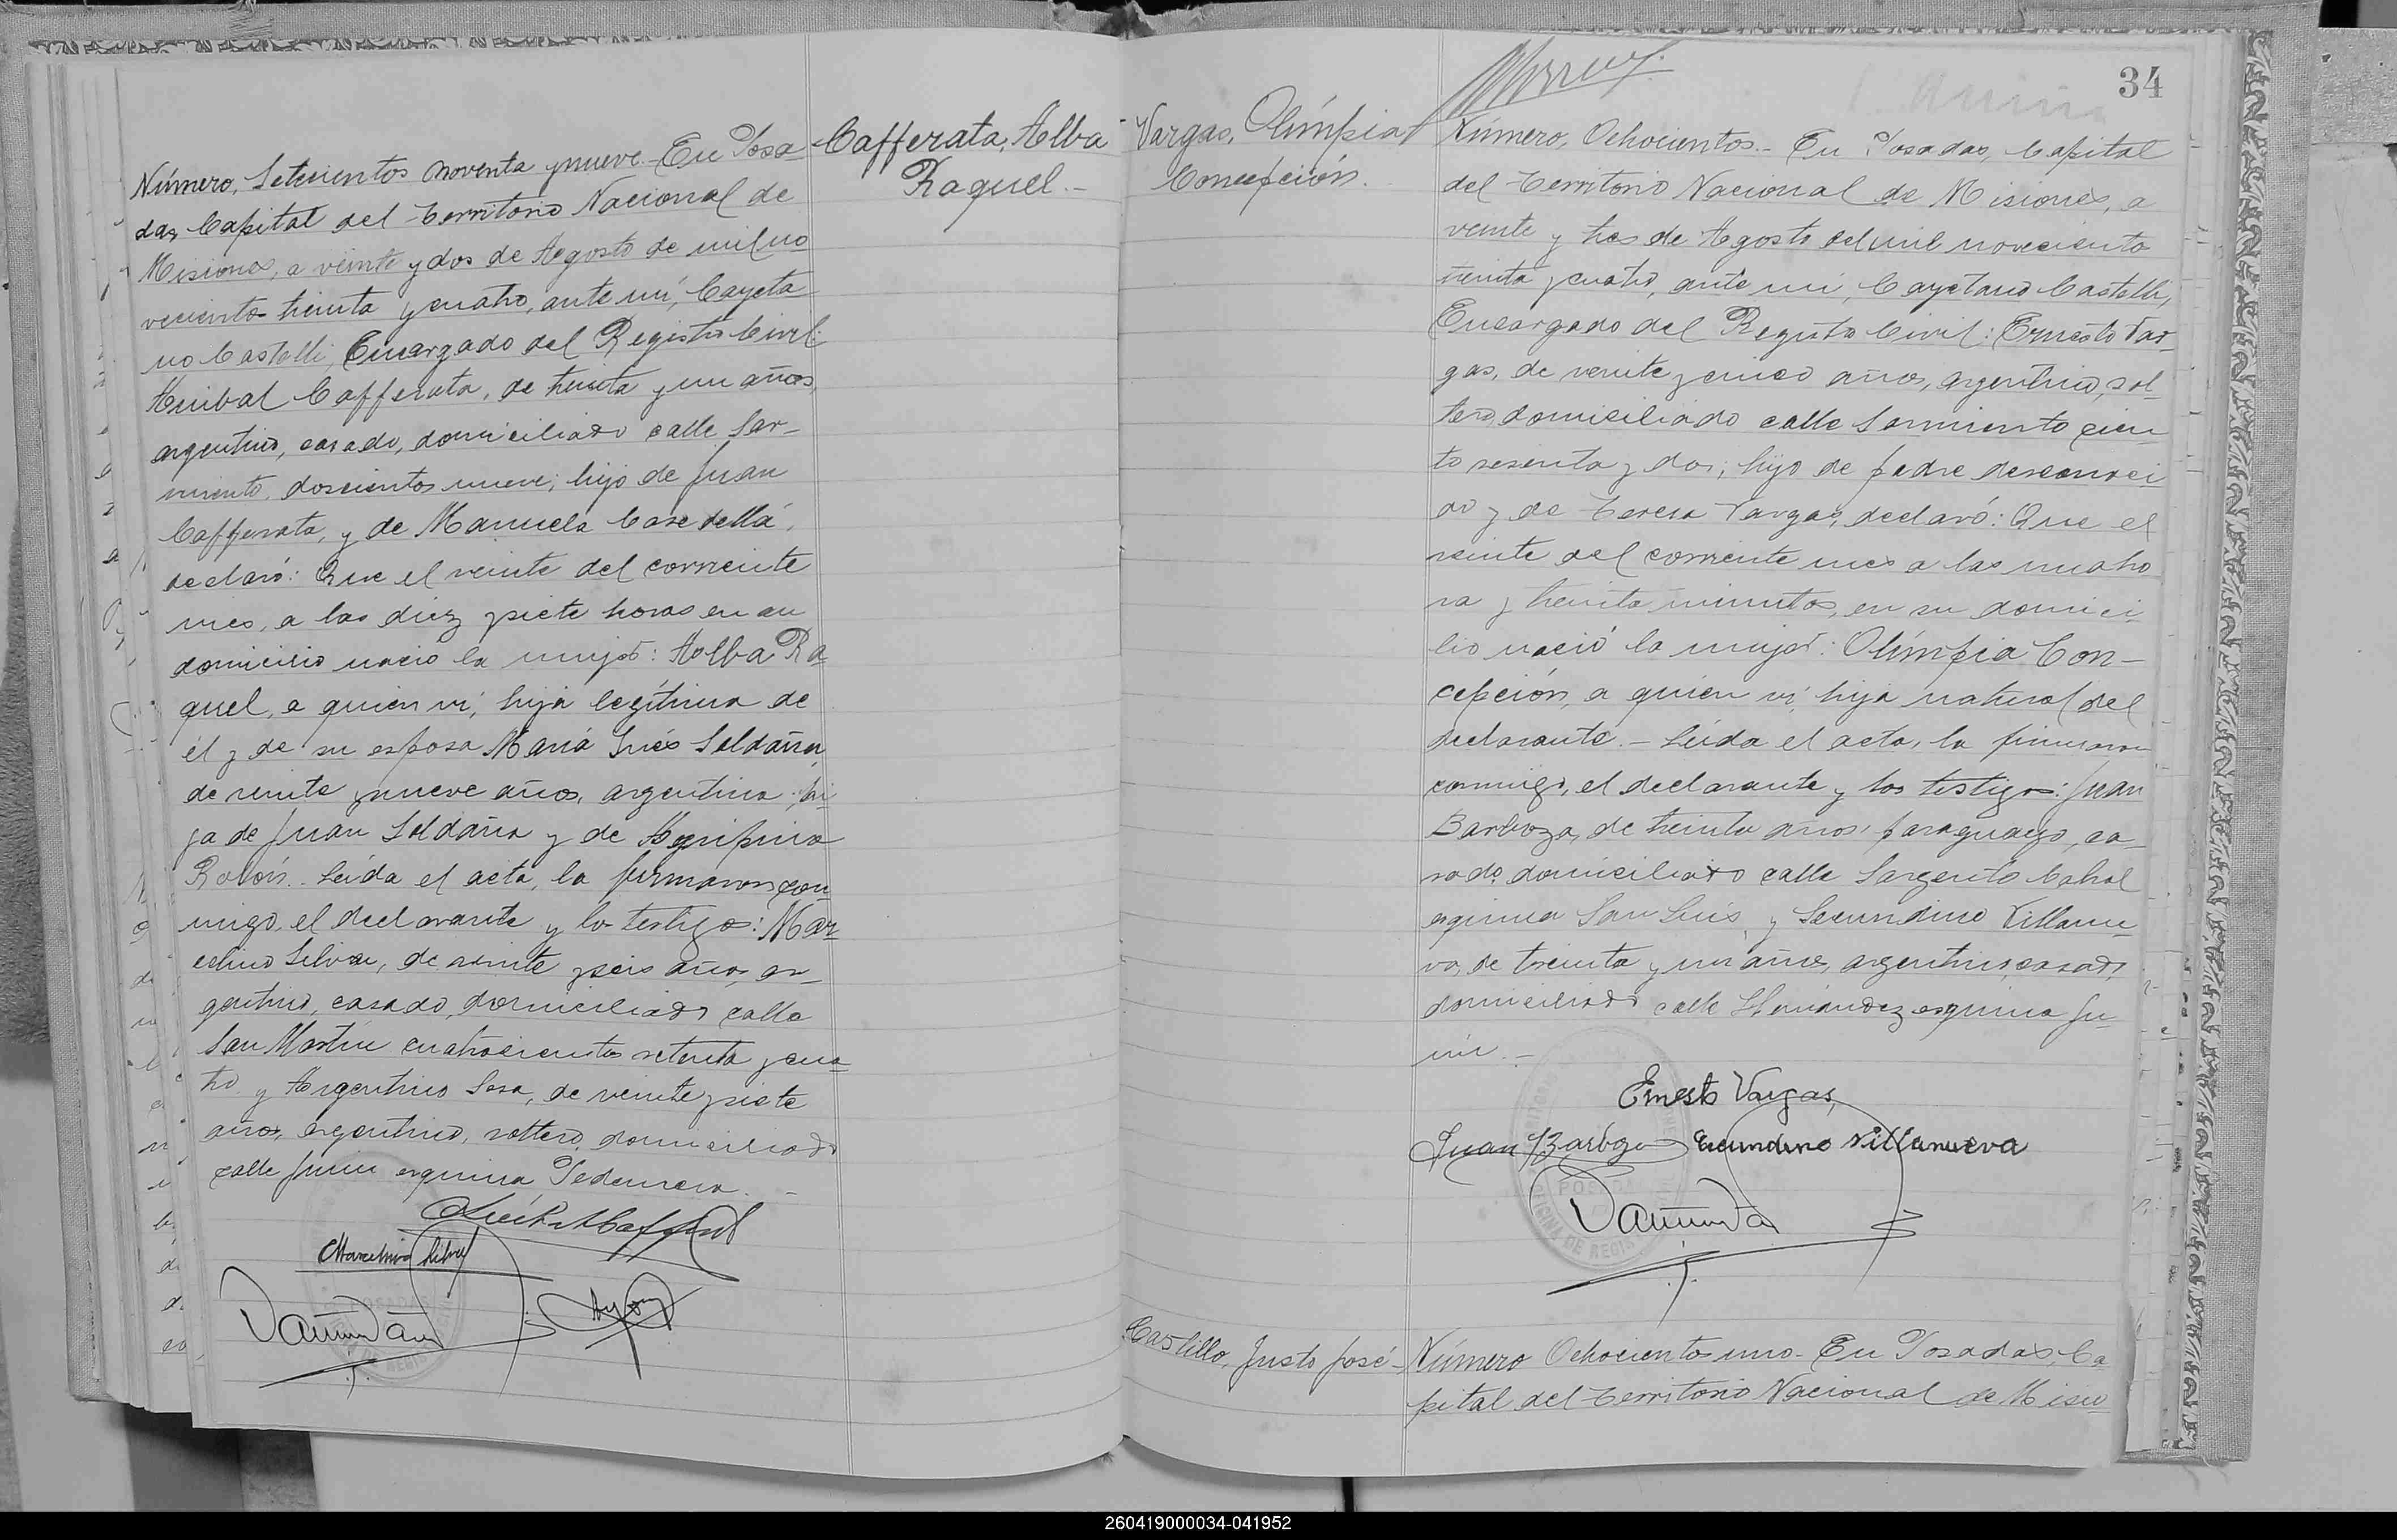 Cafferata, Alba
Raquel.-
Número, Setecientos noventa y nueve.- En Posa
das, Capital del Territorio Nacional de
Misiones, a veinte y dos de Agosto de mil no
veciento treinta y cuatro, ante mí, Cayeta
no Castelli, Encargado del Registro Civil:
Anibal Cafferata, de treinta y un años,
argentino, casado, domiciliado calle Sar-
miento, doscientos nueve; hijo de Juan
Cafferata, y de Manuela
declaró: Que el veinte del corriente
mes, a las diez y siete horas en su
domicilio nació la mujer: Alba Ra
quel, a quien vi, hija legítima de
él y de su esposa María Inés Saldaña,
de veinte y nueve años, argentina, hi
ja de Juan Saldaña y de Agripina
Rolón.- Leída el acta, la firmaron con
migo, el declarante y los testigos: Mar
celino Silva, de veinte y seis años, ar-
gentino, casado, domiciliado calle
San Martín cuatrocientos setenta y cua
tro y Argentino Sosa, de veinte y siete
años, argentino, soltero, domiciliado
calle Junin esquina Pedernera.-
Marcelino Silva
34
Vargas, Olímpia
Concepción.
Número, Ochocientos.- En Posadas, Capital
del Territorio Nacional de Misiones, a
veinte y tres de Agosto del mil novecientos
treinta y cuatro, ante mi, Cayetano Castelli,
Encargado del Registro Civil: Ernesto Var-
gas, de veinte y cinco años, argentino, sol-
tero, domiciliado calle Sarmiento cien-
to sesenta y dos; hijo de padre desconoci-
do y de Teresa Vargas, declaró: Que el
veinte del corriente mes a las
ra y treinta minutos, en su domici-
lio nació la mujer: Olímpia Con-
cepción, a quien vi, hija natural del
declarante.- Leída el acta, la firmaron
conmigo, el declarante y los testigos: Juan
Barboza, de treinta años, paraguayo, ca-
sado, domiciliado calle Sargento Cabral
esquina San Luis, y Secundino Villanue-
va, de treinta y un años, argentino, casado
domiciliado calle Hernandez esquina Ju-
nin.-
Ernesto Vargas,
Juan Barboza Secundino Villanueva
Castillo, Justo José-
Número Ochocientos uno- En Posadas, Ca
pital del Territorio Nacional de Misio
260419000034-041952